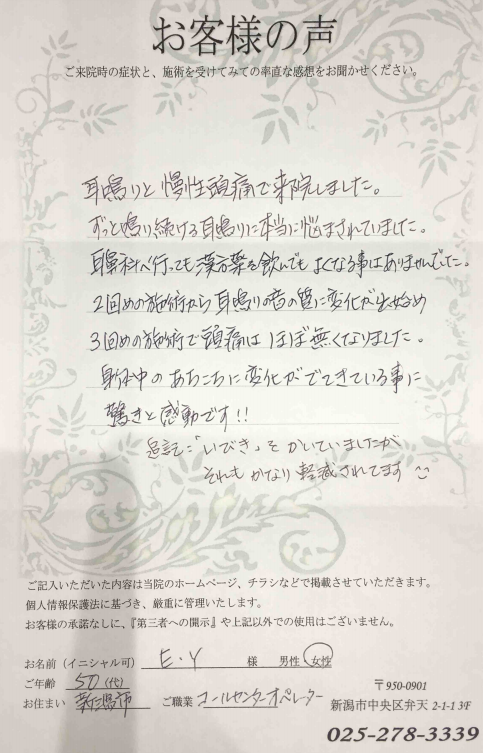 お客様の声
ご来院時の症状と、施術を受けてみての率直な感想をお聞かせください。
耳鳴りと慢性頭痛で来院しました。
ずっと鳴り続ける耳鳴りに本当に悩まされていました。
耳鼻科へ行っても漢方薬を飲んでもよくなる事はありませんでした。
2回めの施術から耳鳴りの音の質に変化が出始め
3回めの施術で頭痛はほぼ無くなりました。
身体中のあちこちに変化がでてきている事に
驚きと感動です!!
追記:「いびき」をかいていましたが
それもかなり軽減されてます
ご記入いただいた内容は当院のホームページ、チラシなどで掲載させていただきます。
個人情報保護法に基づき、厳重に管理いたします。
お客様の承諾なしに、『第三者への開示』や上記以外での使用はございません。
お名前(イニシャル可) E・Y 様 男性 女性
ご年齢 50(代) 〒950-0901
お住まい 新潟市 ご職業 コールセンターオペレーター 新潟市中央区弁天 2-1-1 3F
025-278-3339